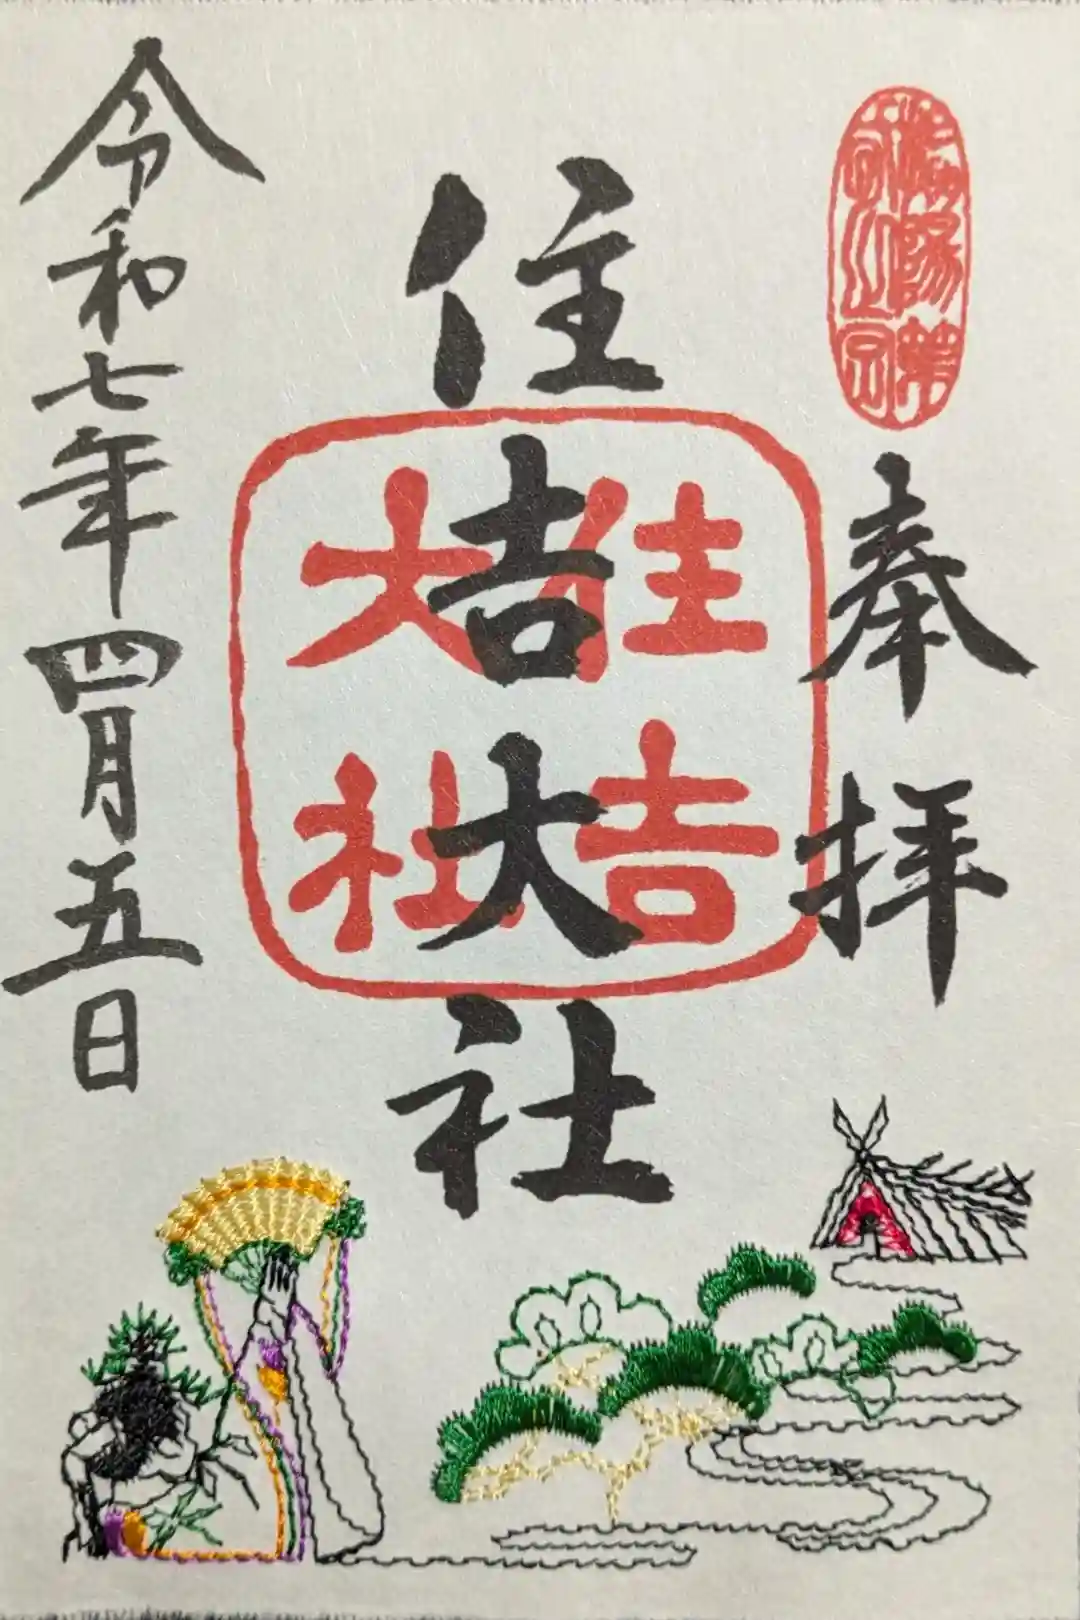 奉拝
住吉大社
住吉大社
令和七年四月五日